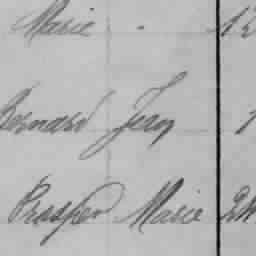 Marie - 12
Bernard Jean 1
Prosper Marie 24